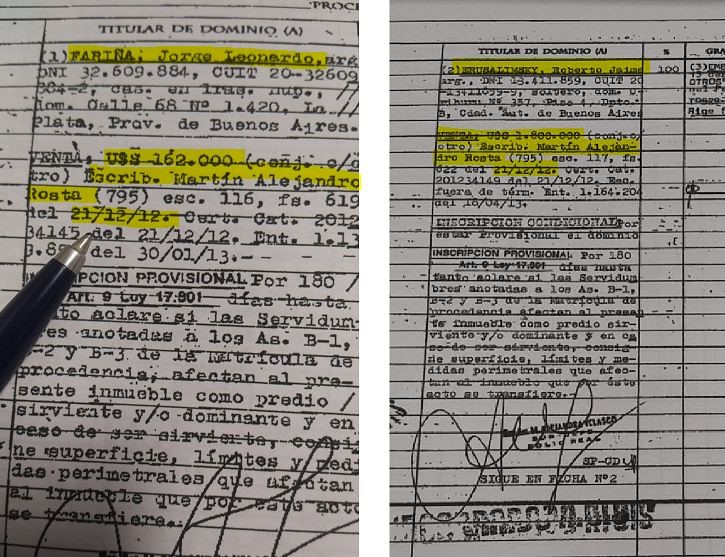 PROCE
TITULAR DE DOMINIO (A)
(1) FARIÑA, Jorge Leonardo, arg
DNI 32.609.884, CUIT 20-32609
884-2, cas. en 1ras. nup.,
dom. Calle 68 Nº 1.420, La
Plata, Prov. de Buenos Aires.
VENTA, U$S 162.000 (conj. c/o
tro) Escrib. Martín Alejandro
Rosta (795) esc. 116, fs. 619
del 21/12/12. Cert. Cat. 2012
34145 del 21/12/12. Ent. 1.13
del 30/01/13.-
INSCRIPCION PROVISIONAL Por 180
Art. 9 Ley 17.801 días hasta
tanto aclare si las Servidum
bres anotadas a los As. B-1,
B-2 y B-3 de la Matrícula de
procedencia, afectan al pre-
sente inmueble como predio
sirviente y/o dominante y en
caso de ser sirviente, consig
ne superficie, límites y medi
das perimetrales que afectan
al inmueble que por este acto
se transfiere.
TITULAR DE DOMINIO (A)
%
(2) ERUSALIMSKY, Roberto Jaime
100
arg., DNI 13.411.859, CUIT 20
soltero, dom.
357, Piso 4, Dpto.
B, Cdad. Aut. de Buenos Aires
VENTA, U$S 1.800.000 (conj. c/
otro) Escrib. Martín Alejan-
dro Rosta (795) esc. 117, fs.
622 del 21/12/12. Cert. Cat.
201234149 del 21/12/12. Reg.
fuera de térm. Ent. 1.164.204
del 16/04/13.
INSCRIPCION CONDICIONAL Por
estar Provisional el dominio
INSCRIPCION PROVISIONAL Por 180
Art. 9 Ley 17.801 días hasta
tanto aclare si las Servidum
bres anotadas a los As. B-1,
B-2 y B-3 de la Matrícula de
procedencia afectan al presen
te inmueble como predio sir-
viente y/o dominante y en ca
so de ser sirviente, consig
ne superficie, límites y me-
didas perimetrales que afec-
tan al inmueble que por éste
acto se transfiere.-
SIGUE EN FICHA Nº2